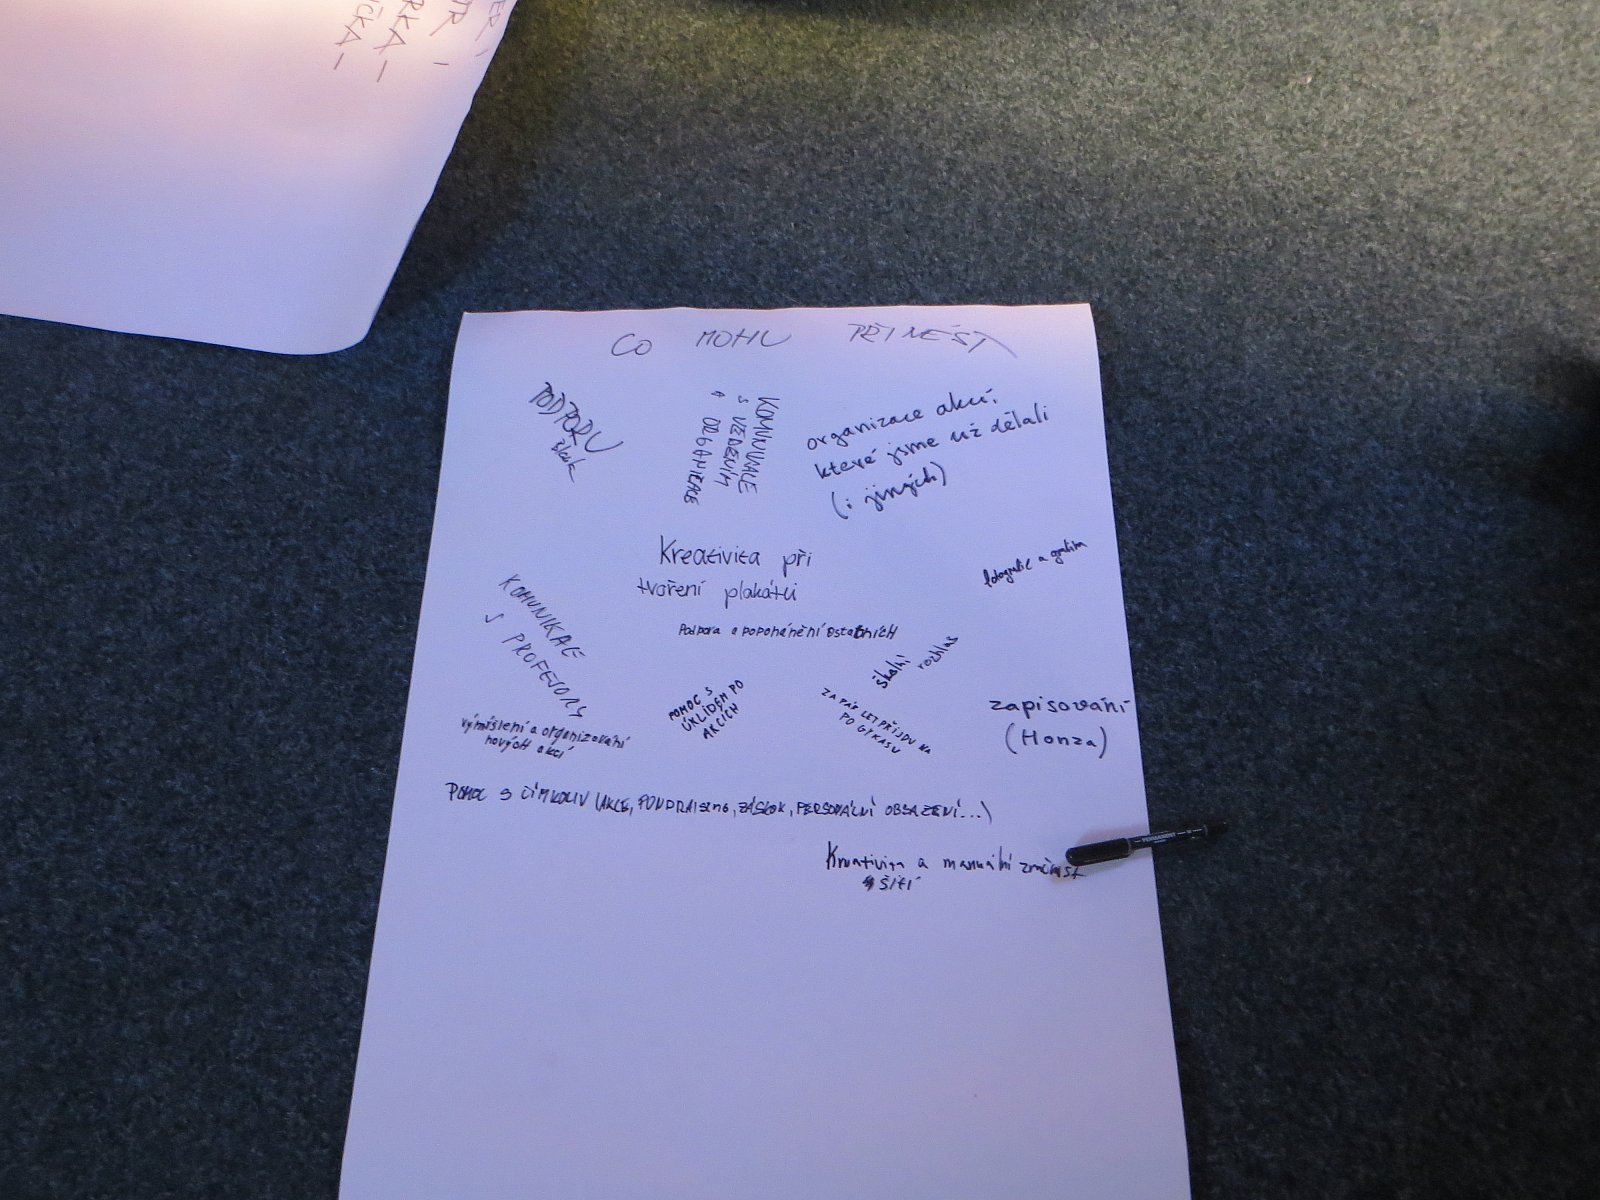 CO MOHU PŘINÉST
PODPORU
KOMUNIKACE
S VEDENÍM
A ORGANIZACE
organizace akcí,
které jsme už dělali
(i jiných)
Kreativita při
tvoření plakátů
fotografie a
KOMUNIKACE
S PROFESORY
Podpora a popohánění ostatních
školní
rozhlas
POMOC S
ÚKLIDEM PO
AKCÍCH
ZA PÁR LET PŘIJDU NA
PO GYKASU
zapisování
(Honza)
vymíšlení a organizování
nových akcí
POMOC S ČÍMKOLIV (AKCE, FUNDRAISING, ZÁSKOK, PERSONÁLNÍ OBSAZENÍ...)
Kreativita a manuální zručnost
šití
PERMANENT